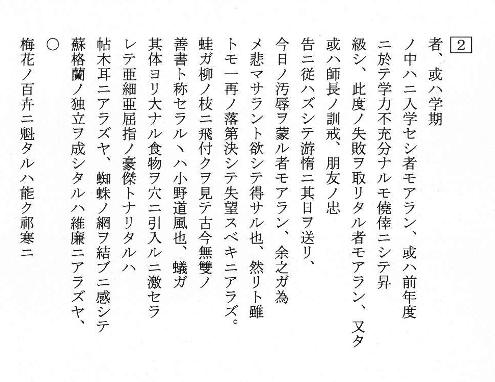 2
者、或ハ学期
ノ中ハニ入学セシ者モアラン、或ハ前年度
ニ於テ学力不充分ナルモ僥倖ニシテ昇
級シ、此度ノ失敗ヲ取リタル者モアラン、又タ
或ハ師長ノ訓戒、朋友ノ忠
告ニ従ハズシテ游惰ニ其日ヲ送リ、
今日ノ汚辱ヲ蒙ル者モアラン、余之ガ為
メ悲マサラント欲シテ得サル也、然リト雖
トモ一再ノ落第決シテ失望スベキニアラズ。
蛙ガ柳ノ枝ニ飛付クヲ見テ古今無雙ノ
善書ト称セラルヽハ小野道風也、蟻ガ
其体ヨリ大ナル食物ヲ穴ニ引入ルニ激セラ
レテ亜細亜屈指ノ豪傑トナリタルハ
帖木耳ニアラズヤ、蜘蛛ノ網ヲ結ブニ感シテ
蘇格蘭ノ独立ヲ成シタルハ維廉ニアラズヤ、
〇
梅花ノ百卉ニ魁タルハ能ク祁寒ニ